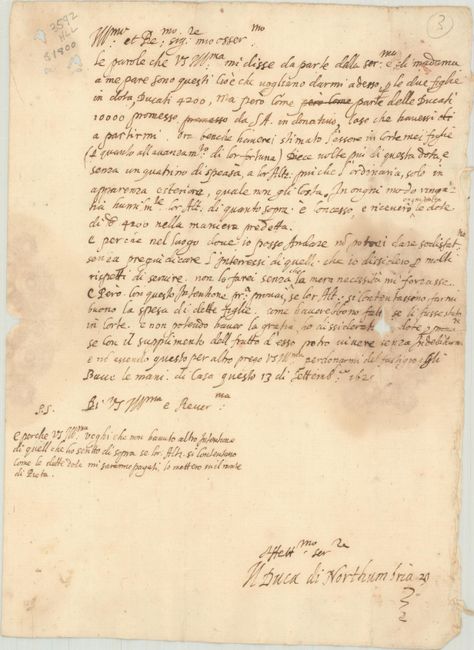 3592
HLL
$1900
3
Ill.mo et Re.mo sig.re mio osser.mo
le parole che VS Ill.ma mi disse da parte della ser.ma di madama
a me pare sono questi Cioè che vogliano darmi adesso p le due figlie
in dota Ducati 4200, Ma però Come parte delle Ducati
10000 promesse da S.A. in donativo, Caso che havessi
a partirmi. Ora benche haverei stimato l'essere in Corte mei figlie
(p quanto all avanzam.to di lor fortuna) Diece volte più di questa dota e
senza un quatrino di spesa a lor Alt. più che l'ordinaria, solo in
apparenza esteriore, quale non gli Costa, In ogni modo ringra
humi.te lor Alt. di quanto sopra è Concesso e riceverò le dote
ogni volta
di 4200 nella maniera predetta.
E perche nel luogo dove io posso Andare nõ potrei dare sodisfat.
senza pregiudicare l'Interessi di quelli che io dissidero p molti
rispetti di servire. non lo farei senza che la mera necessità mi forzasse
E Però Con questa se lor Alt. si Contentassono
buono la spesa di dette figlie, come haverebono fatto se si fusse state
in Corte. e non potendo haver la gratia, io
se Con il supplimento del frutto d'esso potrò vivere senza Indebitarmi
e nõ essendo questo per altro prego VS Ill.ma perdonarmi del fastigio e Gli
Bacio le mani. di Casa questo 13 di settemb.re 162
Di VS Ill.ma e Rever.ma
P.S.
E perche VS Ill.ma veghi che non havuto altro Intentione
di quell che ho scritto di sopra se lor Alt. si Contentano
Come le dette dota mi saranno pagati, lo metterò nel monte
di Pieta.
Affett.mo ser.re
Il Duca di Northumbria